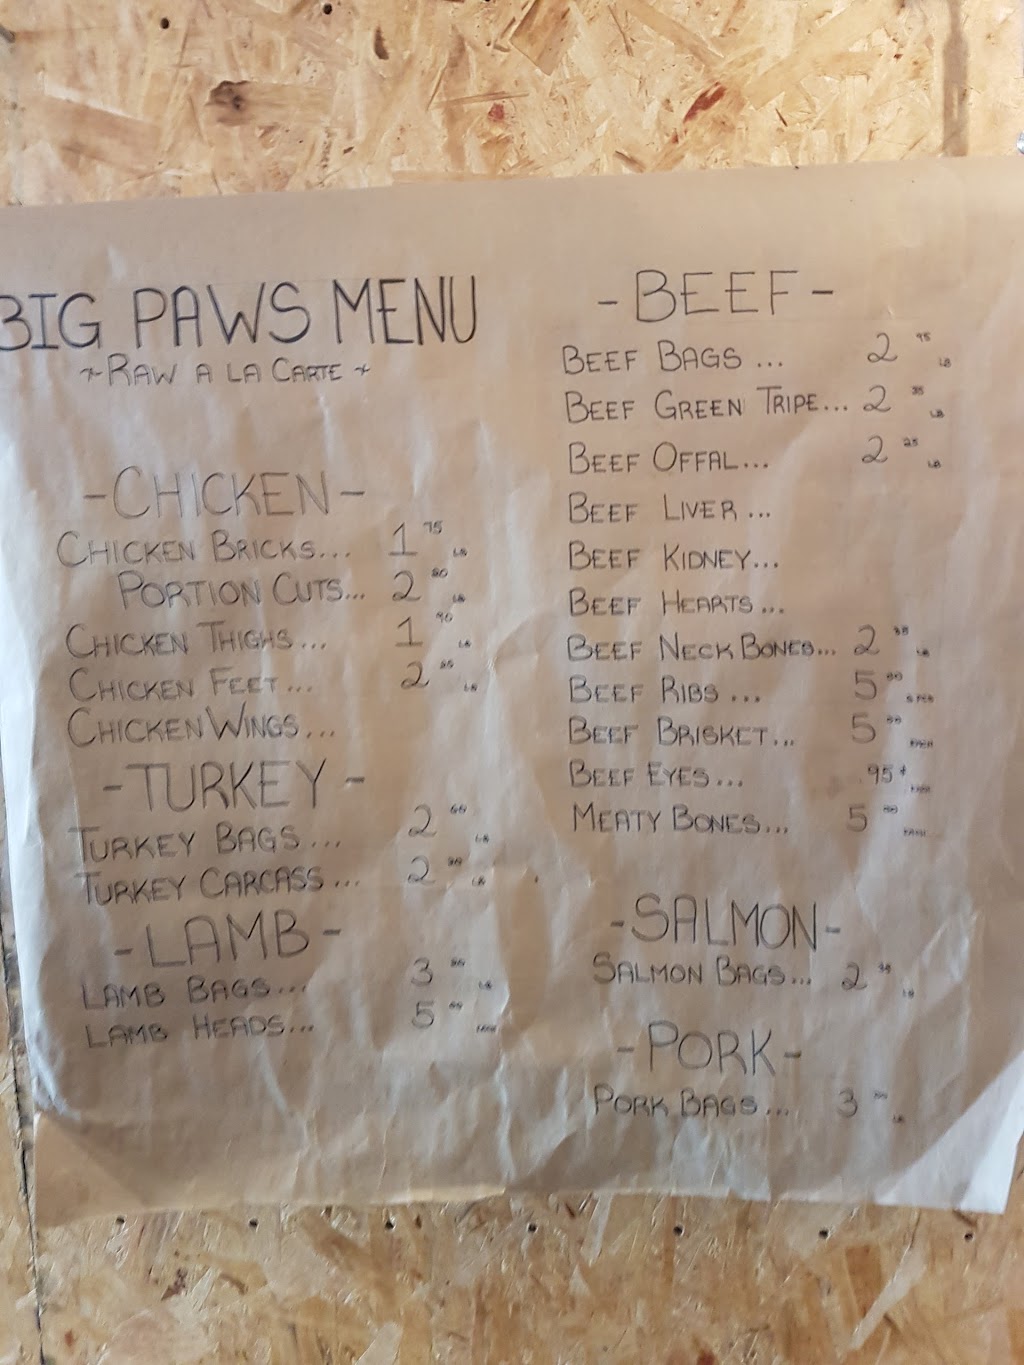 BIG PAWS MENU
~RAW A LA CARTE~
-CHICKEN-
CHICKEN BRICKS... 1 75 LB
PORTION CUTS... 2 80 LB
CHICKEN THIGHS... 1 90 LB
CHICKEN FEET... 2 25 LB
CHICKEN WINGS...
-TURKEY-
TURKEY BAGS... 2 LB
TURKEY CARCASS... 2 LB
-LAMB-
LAMB BAGS... 3 LB
LAMB HEADS... 5 EACH
-BEEF-
BEEF BAGS... 2 95 LB
BEEF GREEN TRIPE... 2 35 LB
BEEF OFFAL... 2 25 LB
BEEF LIVER...
BEEF KIDNEY...
BEEF HEARTS...
BEEF NECK BONES... 2 LB
BEEF RIBS... 5
BEEF BRISKET... 5 EACH
BEEF EYES... .95¢ EACH
MEATY BONES... 5 EACH
-SALMON-
SALMON BAGS... 2 LB
-PORK-
PORK BAGS... 3 LB